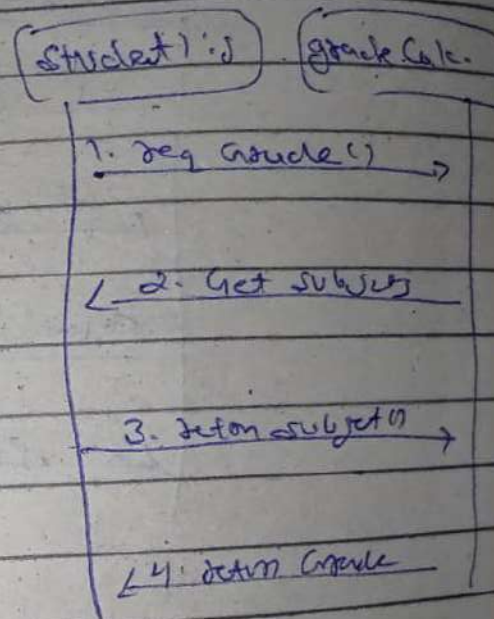 Student1:s grade Calc.
1. req Grade()
2. Get subjects
3. retrn subject()
4. retrn Grade